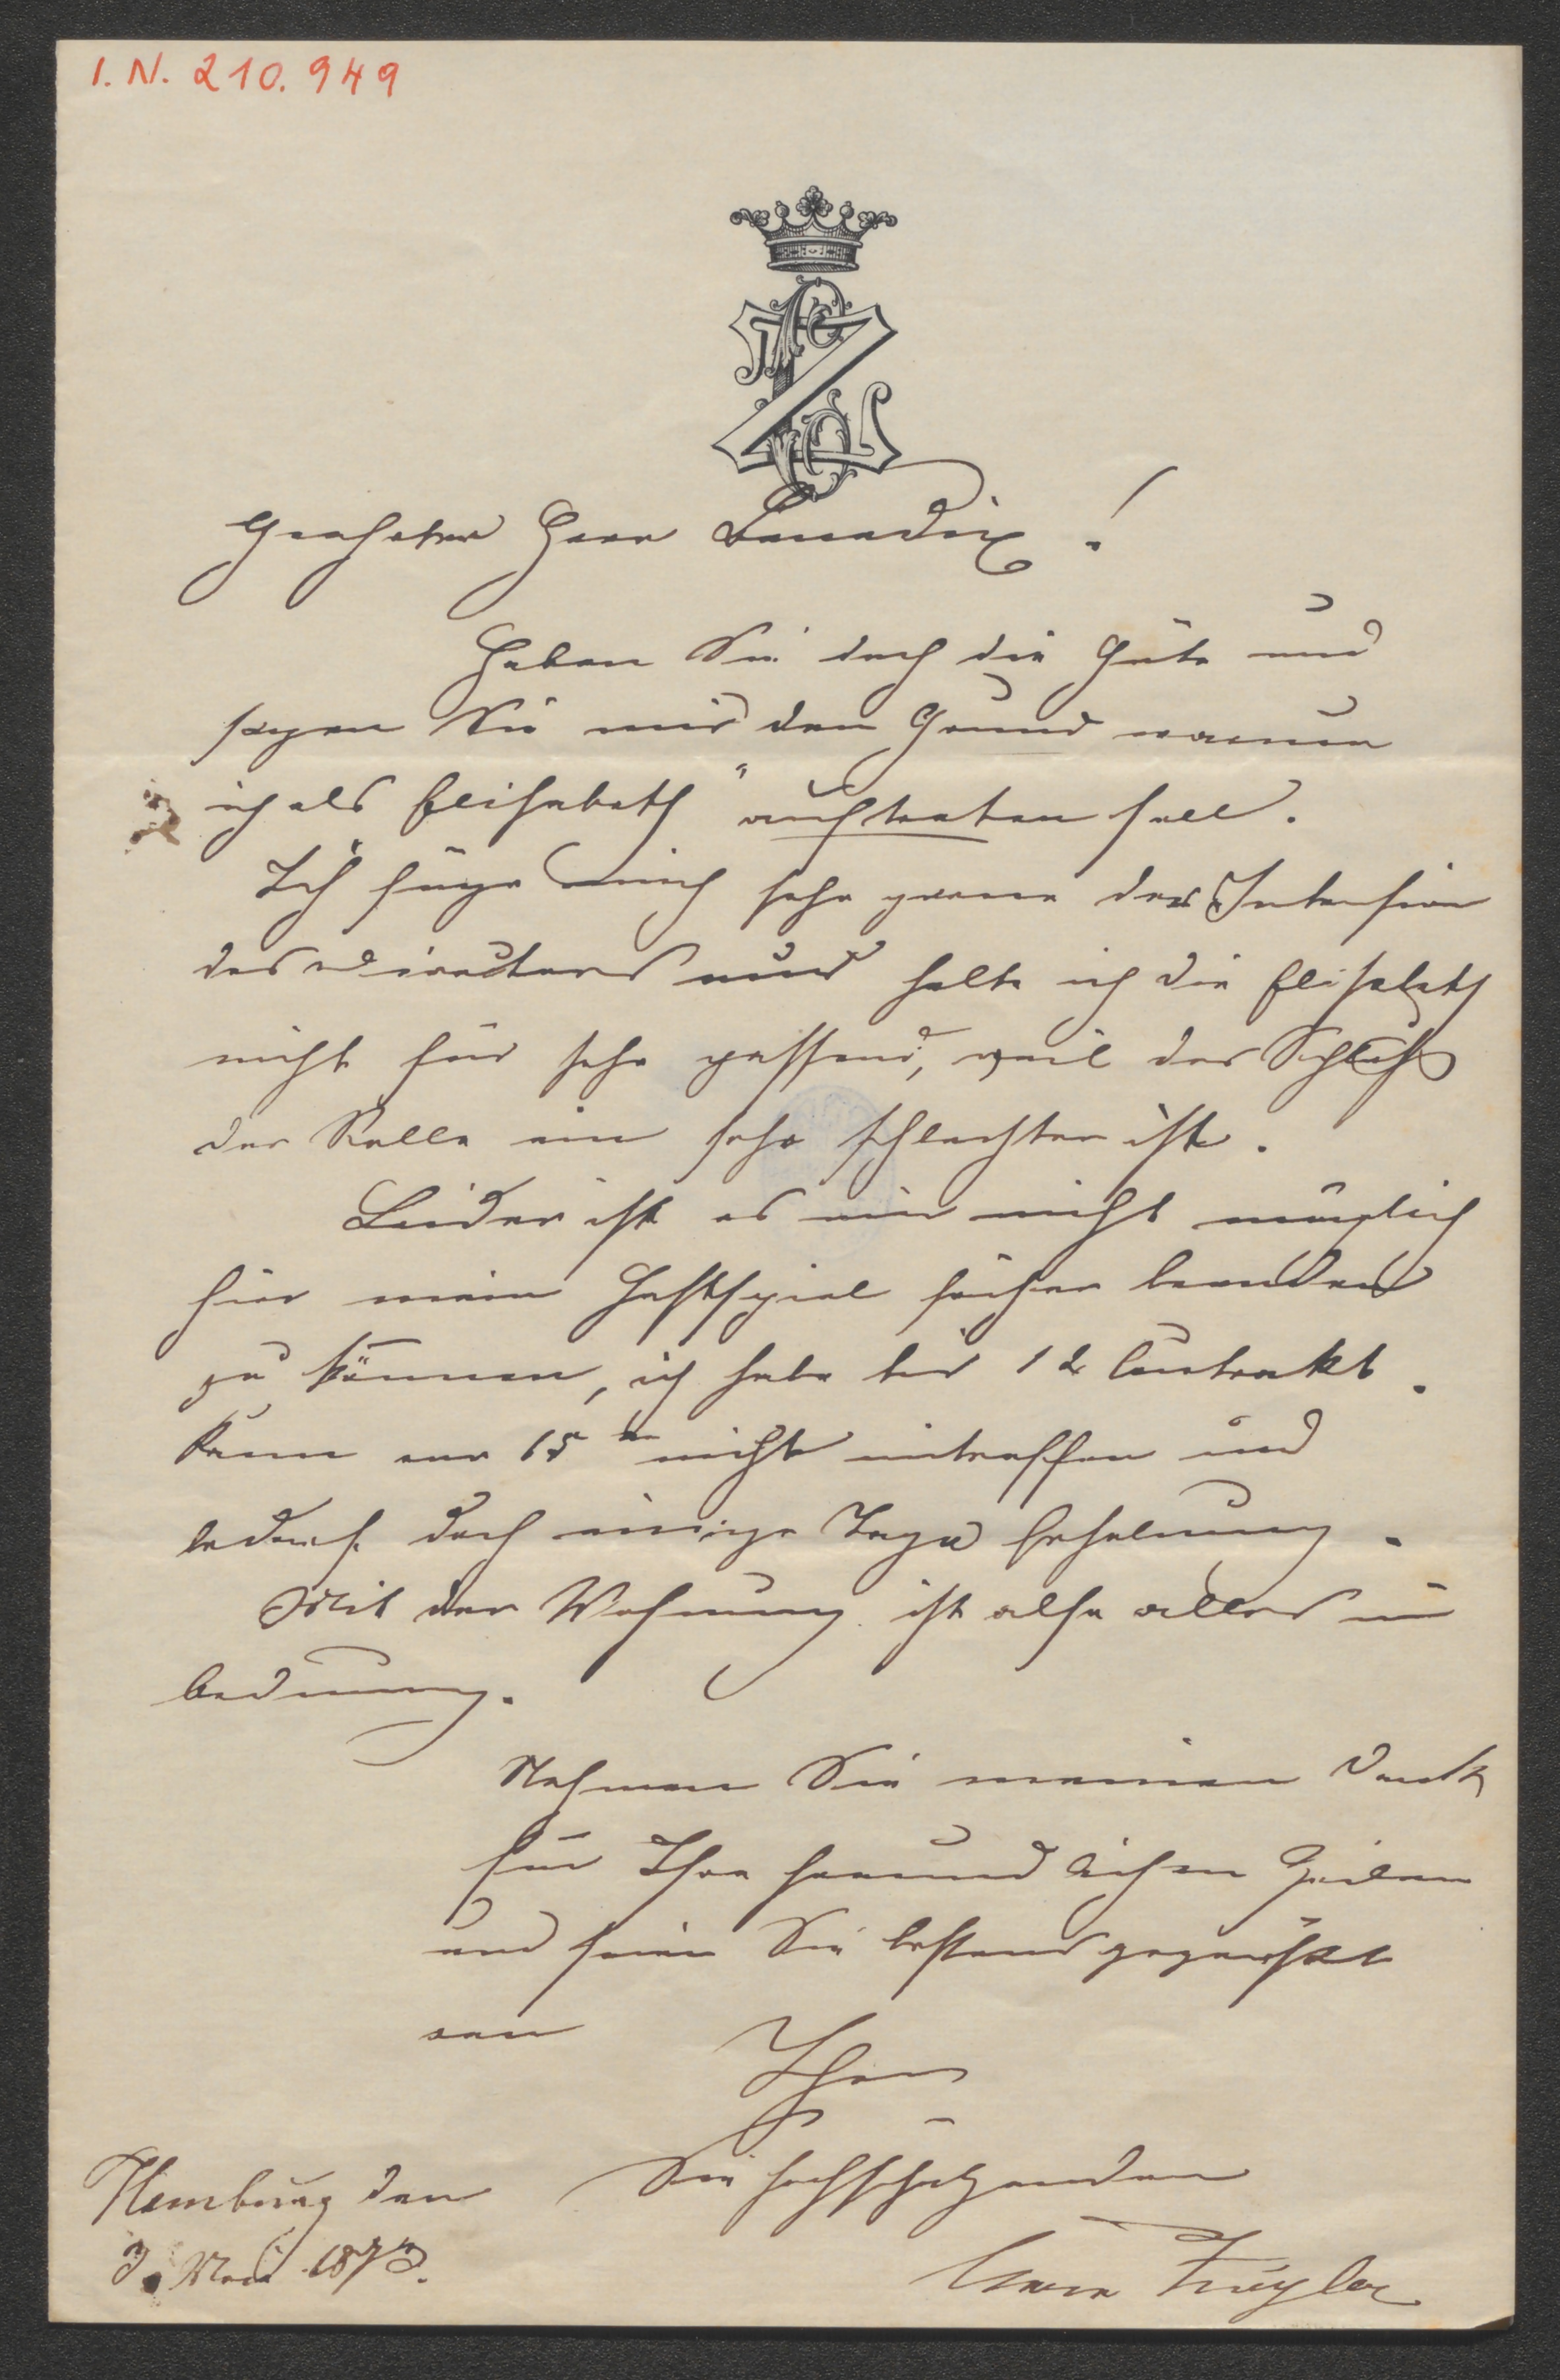 I. N. 210.949
Geehrter Herr Benedix!
Haben Sie doch die Güte und
sagen Sie mir den Grund warum
ich als Elisabeth" auftreten soll.
Ich füge mich sehr gerne der Intension
des Directors nur halte ich die Elisabeth
nicht für sehr passend, weil der Schluß
der Rolle ein sehr schlechter ist.
Leider ist es mir nicht möglich
hier mein Gastspiel früher beenden
zu können, ich habe bis 12 Contrakt.
Kann vor 15ten nicht eintreffen und
bedarf doch einige Tage Erholung.
Mit der Wohnung ist also alles in
Ordnung.
Nehmen Sie meinen Dank
für Ihre freundlichen Zeilen
und seien Sie bestens gegrüßt
von
Ihrer
Sie hochschätzenden
Hamburg den
3. Mai 1873.
Clara Ziegler